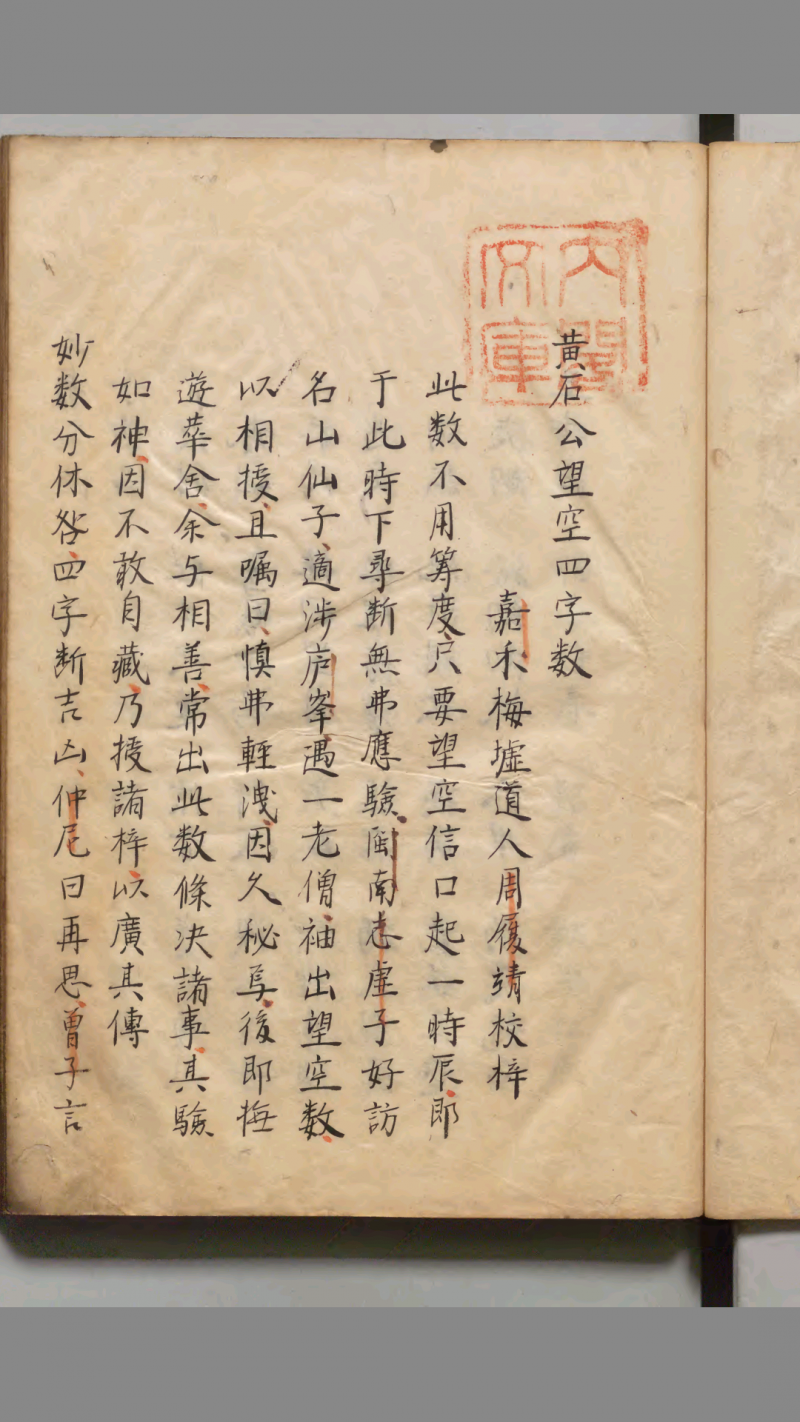 内閣文庫
黄石公望空四字数
嘉禾梅墟道人周履靖校梓
此数不用筭度只要望空信口起一時辰即
于此時下尋断無弗應驗閩南志虚子好訪
名山仙子適涉庐峯遇一老僧袖出望空数
以相授且嘱曰慎弗輕洩因久秘焉後即梅
遊華舍余与相善常出此数條决諸事其驗
如神因不敢自藏乃授諸梓以廣其傳
妙数分休咎四字断吉凶仲尼曰再思曾子言